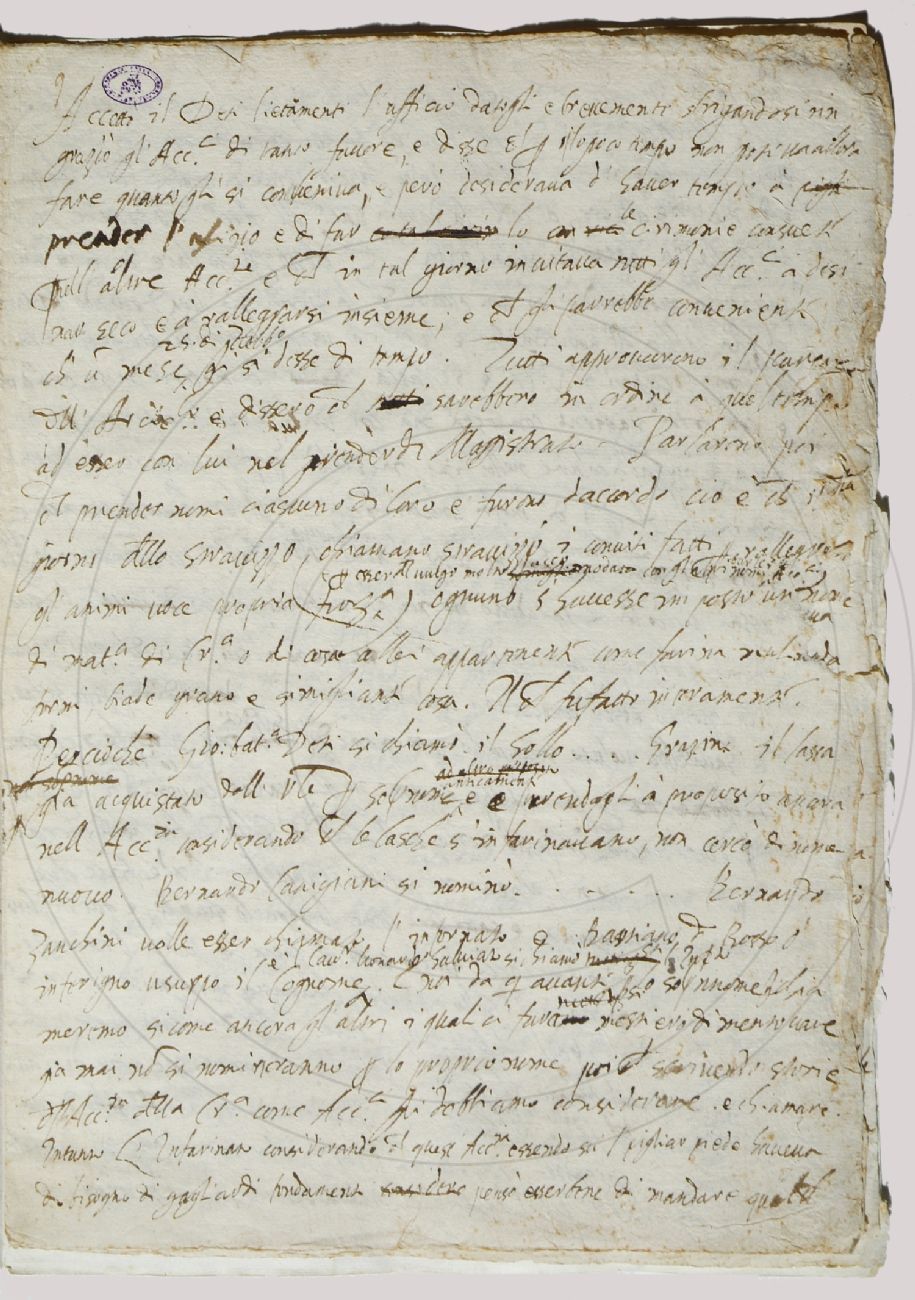 Accettò il Deti lietamenti l'ufficio datogli e brevementi sbrigandosi rin
graziò gl'Acc.ci di tanto favore, e disse ch p il poco tempo non poteva allora
fare quanto gli si conveniva, e però desiderava d'haver tempo à pigli
prender l'ufizio e di far lo con le cirimonie consuete
nell'altre Acc.e e ch in tal giorno invitava tutti gl'Acc.ci à desi
nar seco e à rallegrarsi insieme, e ch gli parrebbe convenienti
ch u mese gli si desse di tempo. Tutti approvarono il parere
dell' Arcic.o e dissero ch sarebbero in ordine à quel tempo
ad esser con lui nel prender di Magistrato. Parlarono poi
del prender nomi ciascuno di loro e furono d'accordo cio è ch il
giorno dello stravizzo, chiamano stravizzo i conviti fatti p rallegrar
p esser dal vulgo molto
gl'animi voce propria ognuno s'havesse imposto un nome
di mat.a di Cr.a o di cosa allei apparenenti come farina
forni biade grano e simiglianti cosa. Il ch fu fatto interamente.
Percioche Gio: bat.a Deti si chiamò il Sollo .... Grazini il Lasca
sopranome
già acquistato dell' p sopranome e parendogli à proposito ancora
nell'Acc.ia considerando ch le lasche s'infarinavano, non cercò di nome
nuovo. Bernardo Canigiani si nominò . . . . . Bernardo
Zanchini volle esser chiamato l'infornato e Bastiano d' Rossi
Cav.r Lionardo Salviati si chiamò l'Inf.to
inferigno il cognome. E noi da q avanti p lo sopranome gli chia
meremo sicome ancora gl'altri i quali ci fia mestiero di mentovare
già mai nō si nomineranno p lo proprio nome poi ch scrivendo storie
dell'Acc.ia della Cr.a come Acc.ci gli dobbiamo considerare e chiamare.
Intanto L'Infarinato considerando ch quest'Acc.a essendo sul pigliar piede haveva
di bisogno di gagliardi fondamenti pensò esser bene di mandare qualch